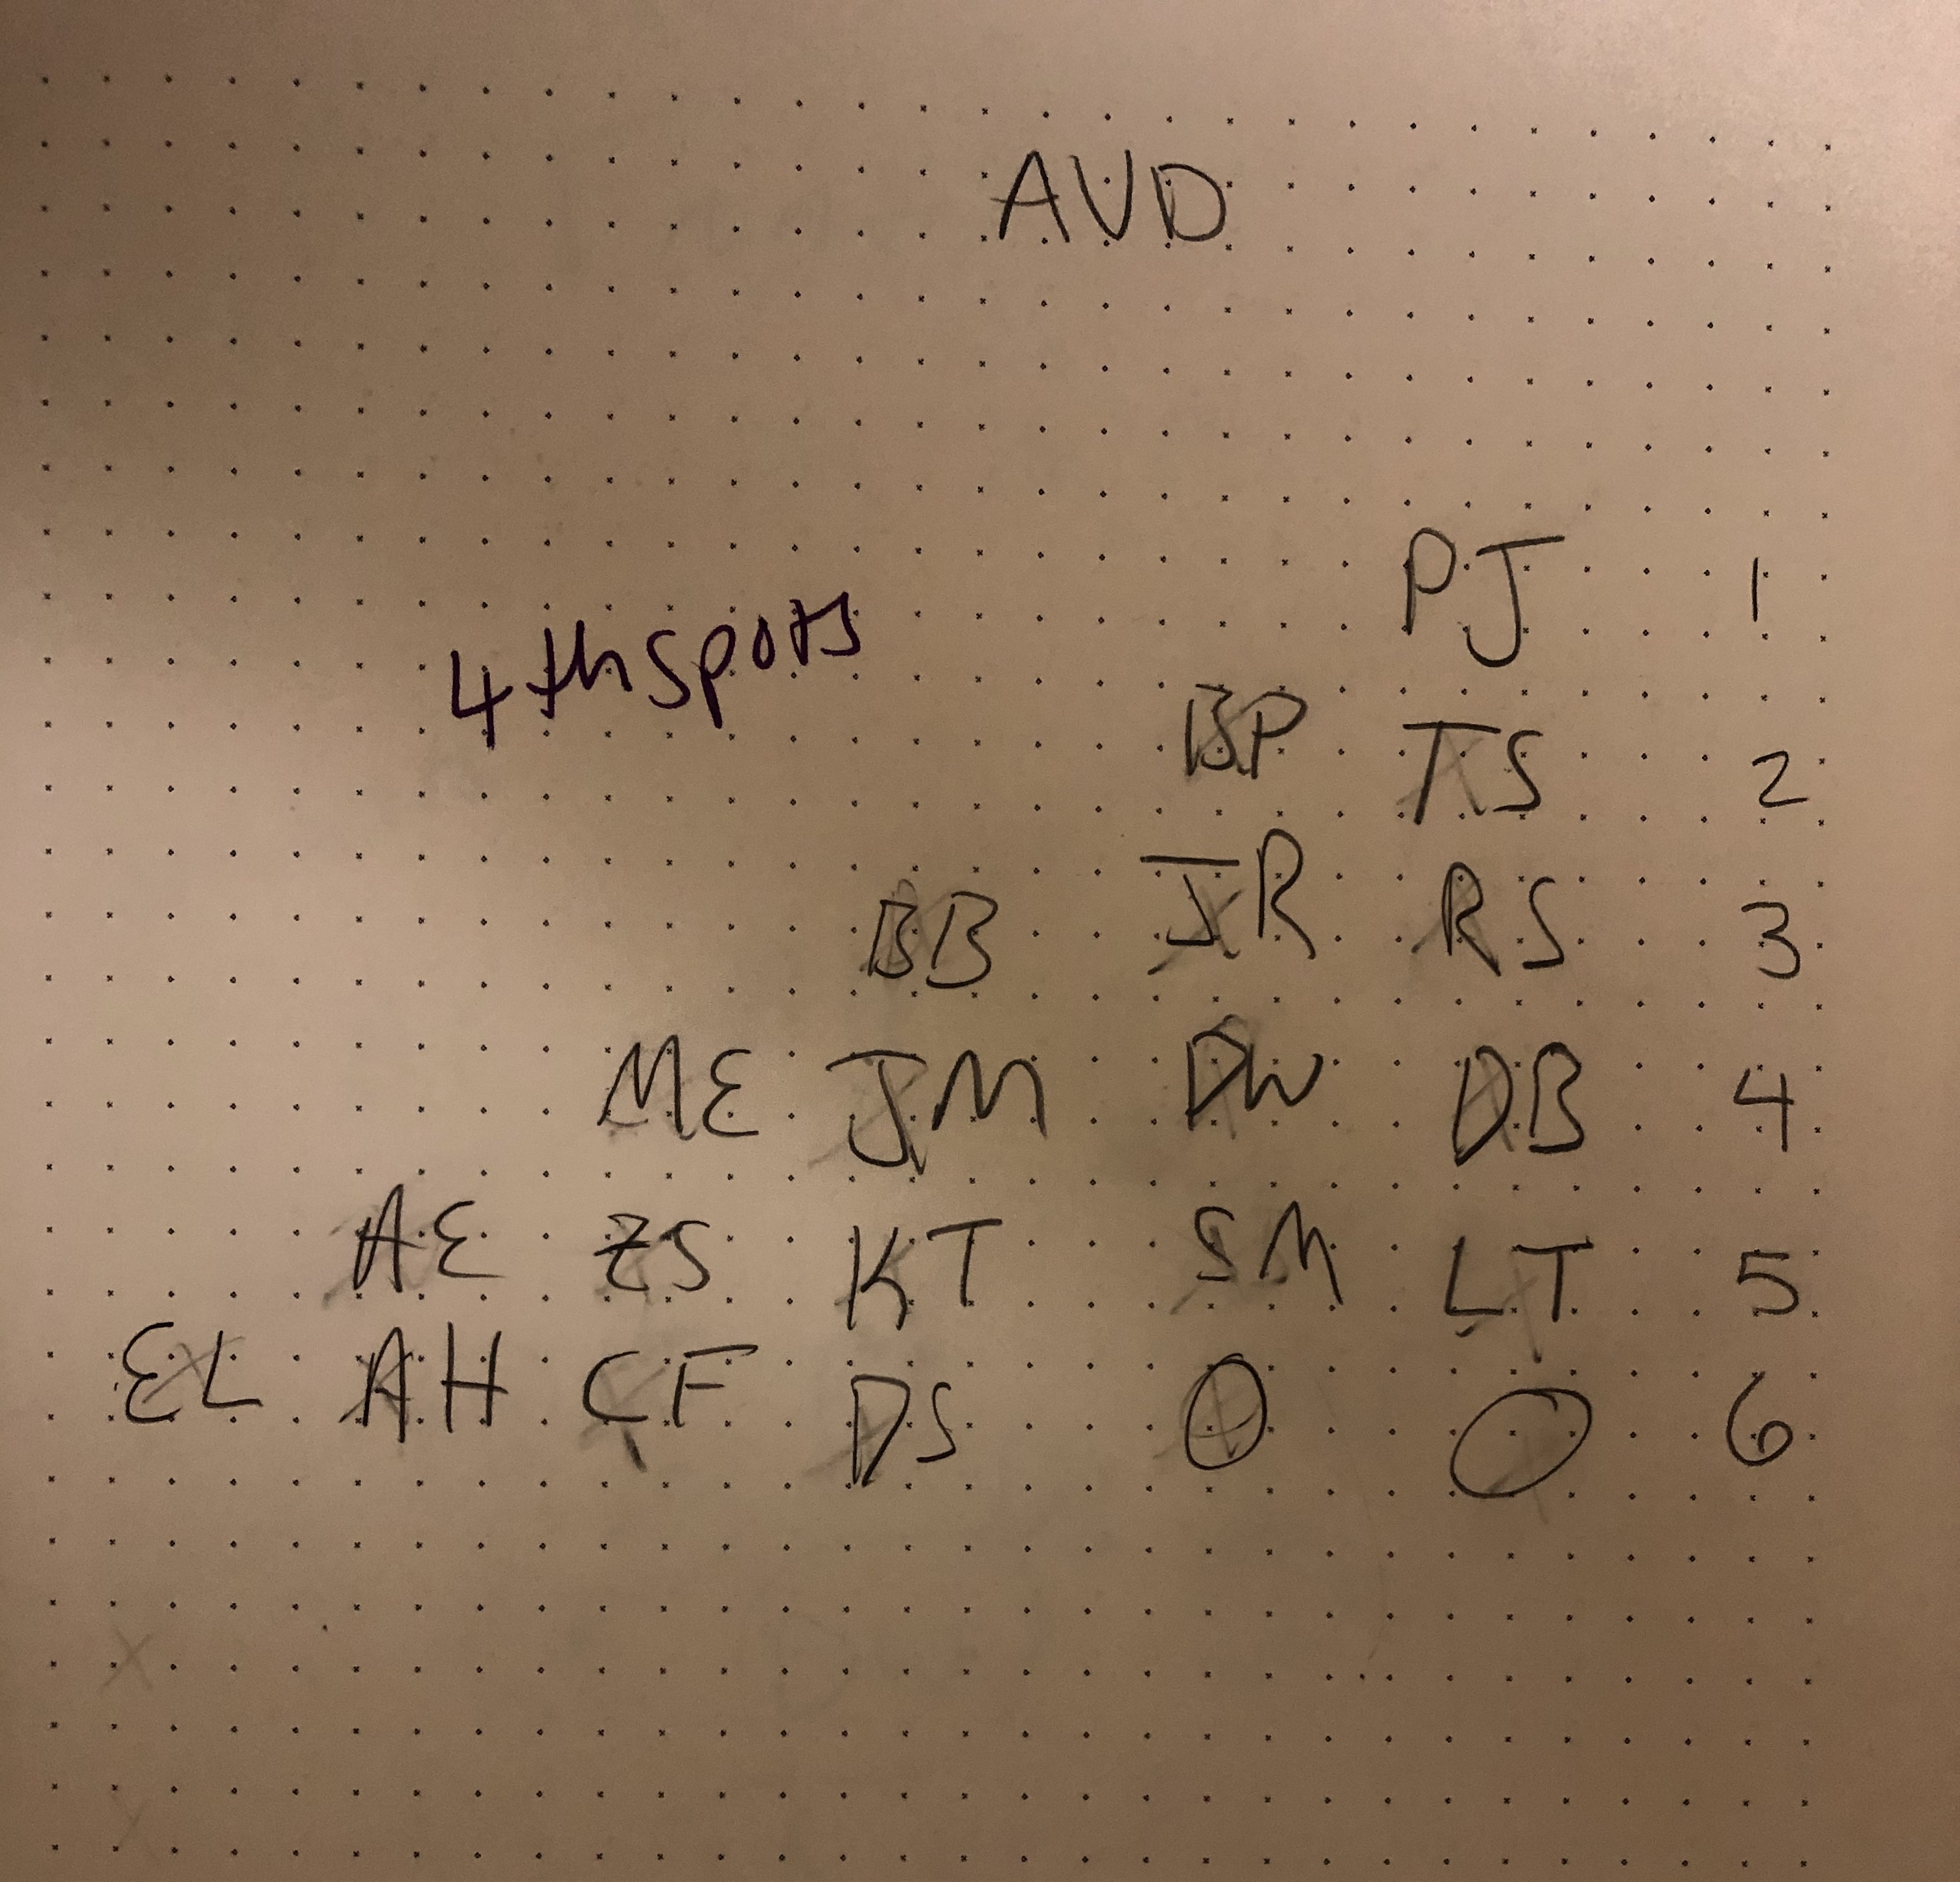 AVD
PJ 1
4th spots
BP TS 2
BB JR RS 3
ME JM DW DB 4
AE ZS KT SM LT 5
EL AH CF DS O O 6